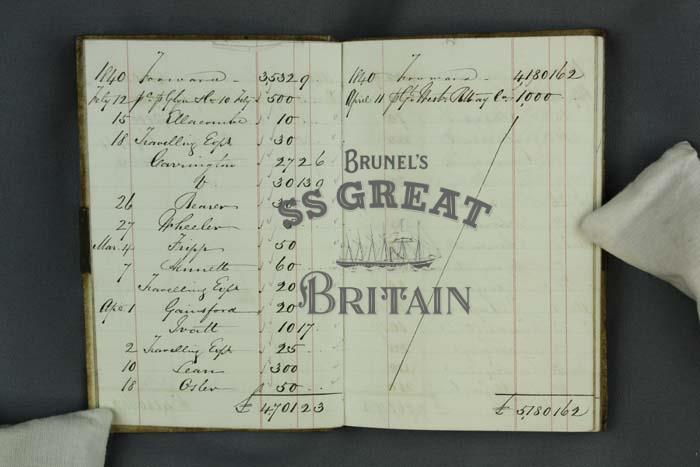 1840 Forward - 3532 9 .
Feby 12 pc p Glyn & Co 10 Feby 500
15 Ellacombe 10 . .
18 Travelling Exps 30
Carrington 27 2 6
Do 30 13 9
26 30
27 Wheeler
Mar. 4 Tripp 50
7 Hennett 60
Travelling Exps 20
Apl 1 Gainsford 20
10 17
2 Travelling Exps 25
10 Lean 300
18 Osler 50
£ 4701 2 3
1840 Forward - 4180 16 2
April 11 p Gt Westn Railway Co 1,000
£ 5,180 16 2
BRUNEL'S
SS GREAT
BRITAIN